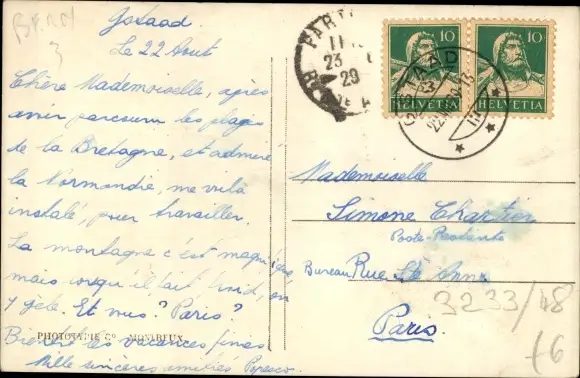 BERN
3
Gstaad
Le 22 Aout
Chère Mademoiselle, après
avoir parcouru les plages
de la Bretagne, et admiré
la Normandie, me voilà
instalé, pour travailler.
La montagne c'est magnifique,
mais lorsqu'il fait froid, on
y gèle. Et vous? Paris?
Bientôt les vacances
Mille sincères amitiés
PHOTOTYPIE Co. MONTREUX
PARIS
23
29
10
10
HELVETIA
HELVETIA
GSTAAD
Mademoiselle
Simone Chartier
Poste-Restante
Bureau Rue Ste Anne
Paris.
3233/48
f6